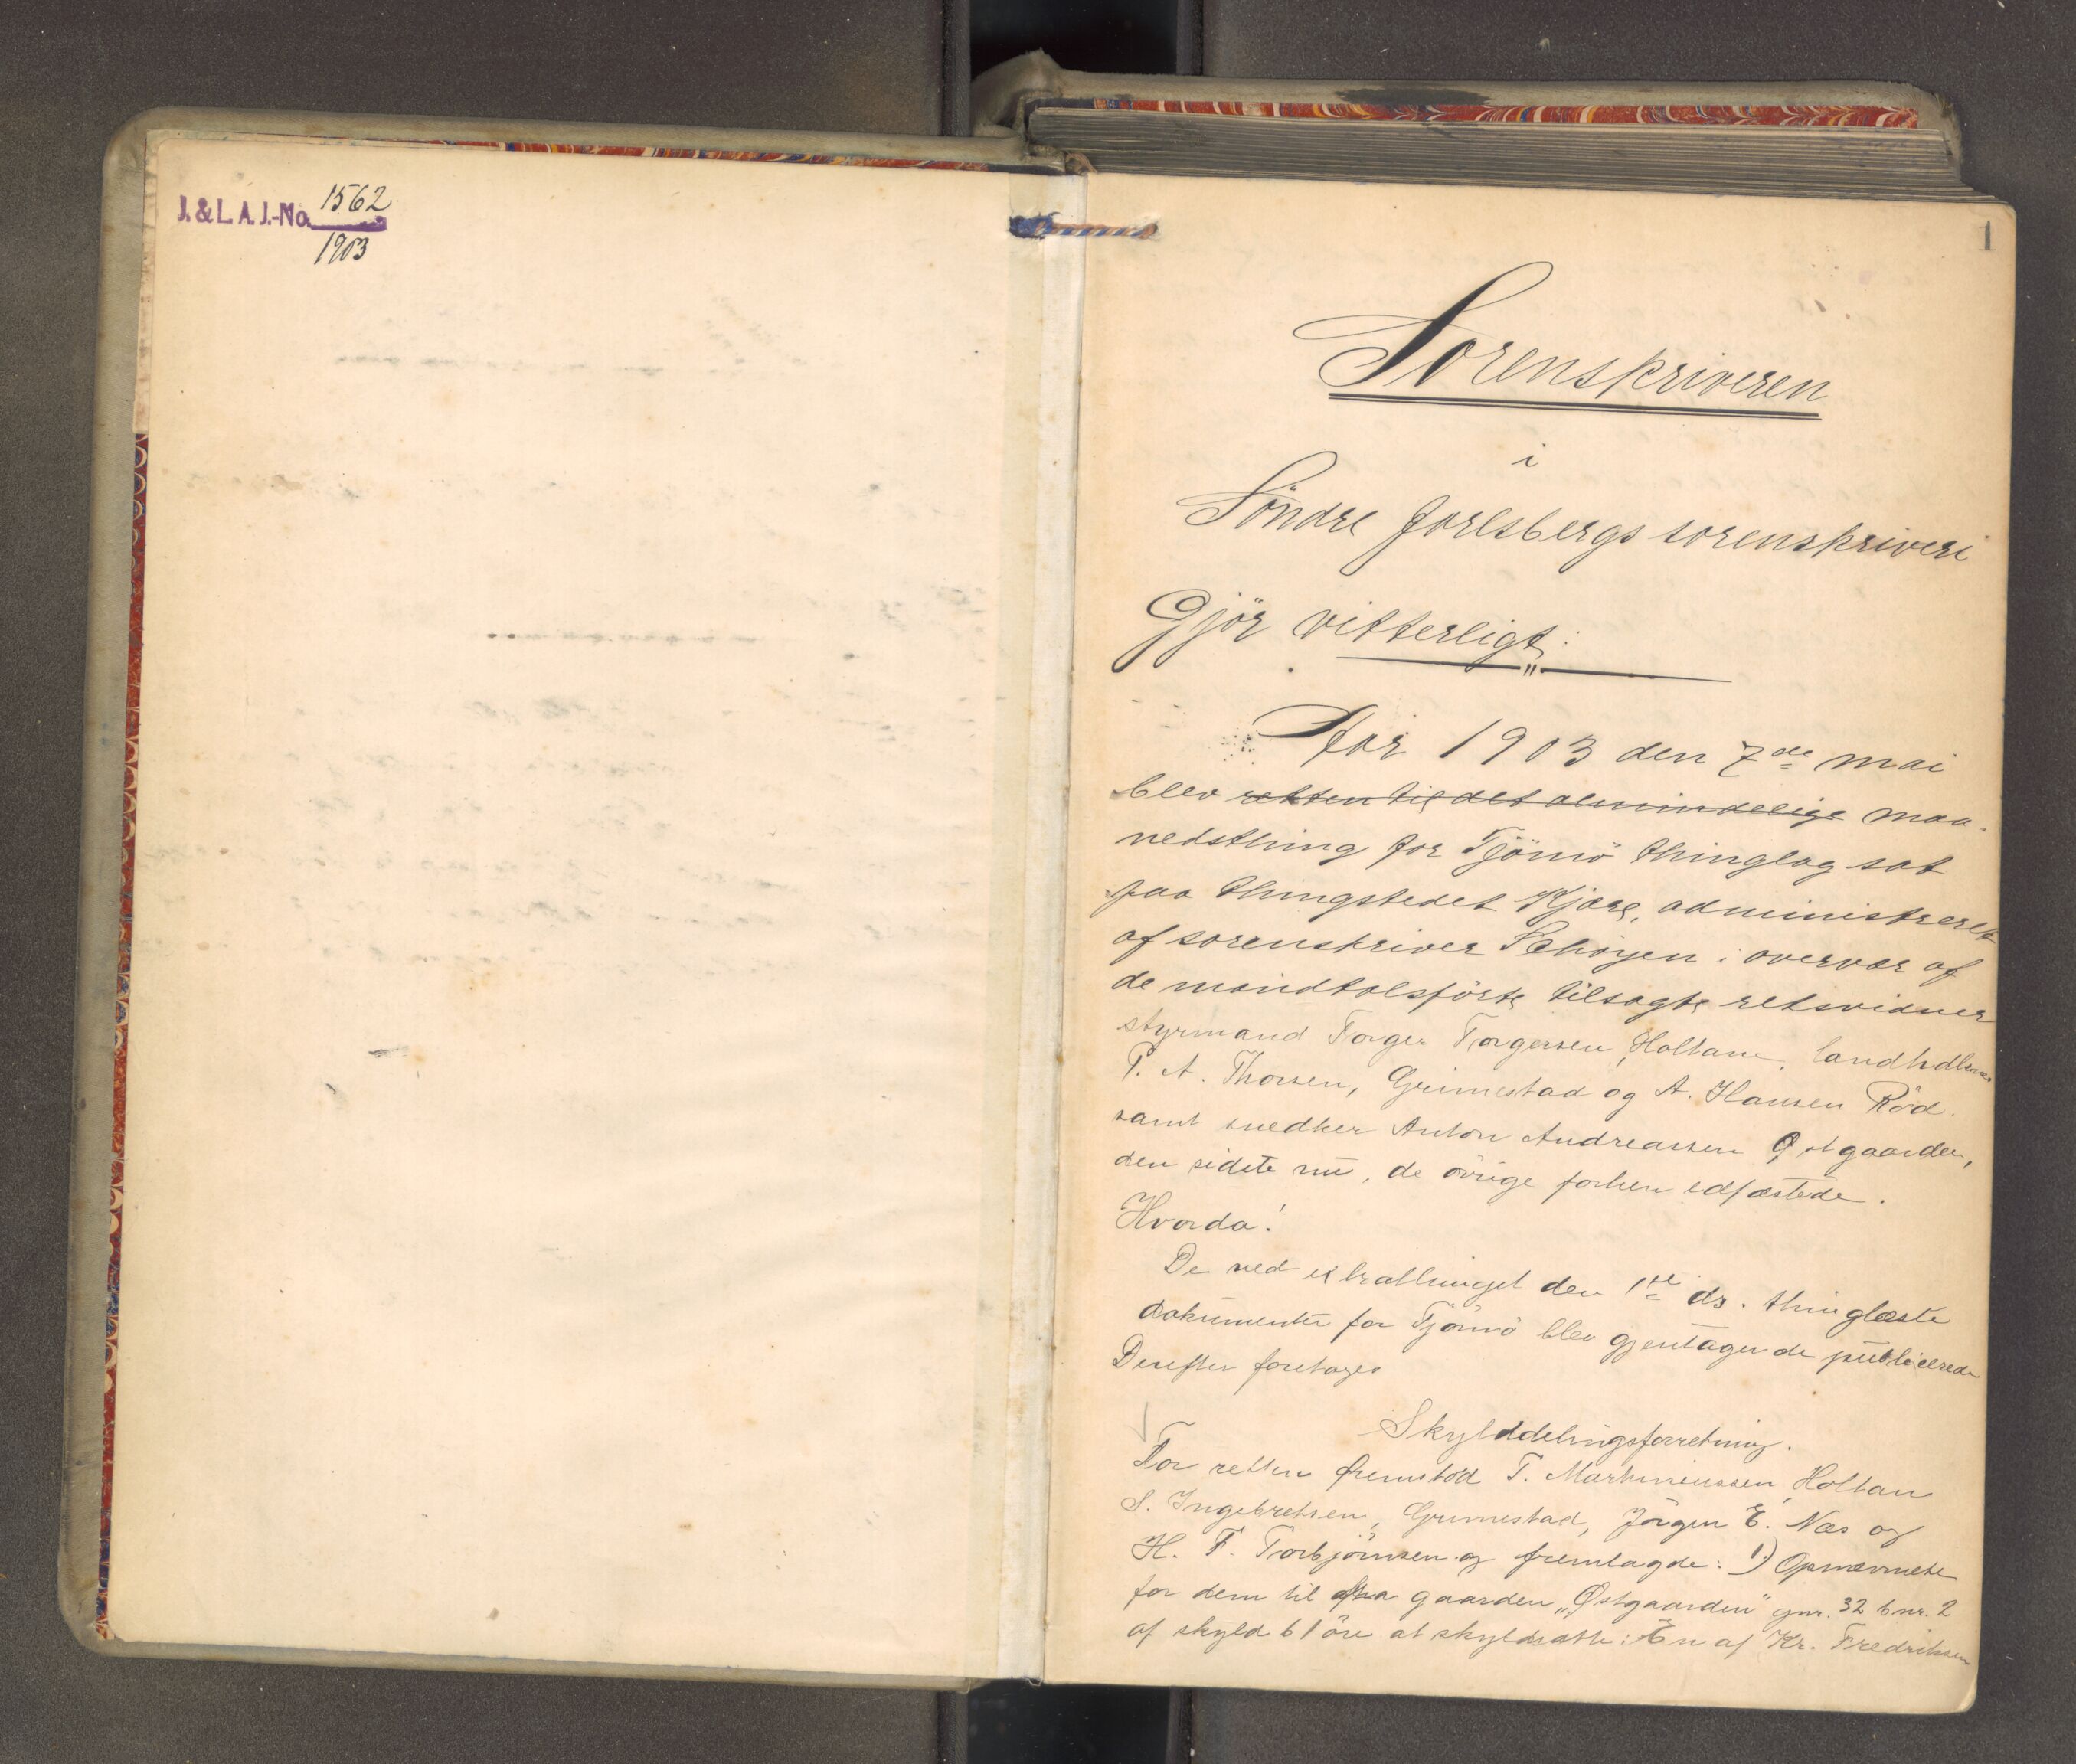 J. & L. A. J.-No. 1562
1903
1
Sorenskriveren
i
Söndre Jarlsbergs sorenskriveri
Gjör vitterligt:
Aar 1903 den 7de mai
blev retten til det almindelige maa-
nedsthing for Tjömö thinglag sat
paa thingstedet Kjære, administreret
af sorenskriver Schöyen i overvær af
de mandtalsförte, tilsagte retsvidner
styrmand Torger Torgersen, Holtane, landhdlere
P. A. Thorsen, Grimestad og A. Hansen Röd.
samt snedker Anton Andreassen Østgaarden,
den sidste nu, de övrige forhen edfæstede.
Hvorda!
De ved extrathinget den 1ste ds. thinglæste
dokumenter for Tjömö blev gjentagende publicerede
Derefter foretages
Skylddelingsforretning.
For retten fremstod T. Marthiniussen Holtan
S. Ingebretsen, Grimestad, Jörgen E. Næs og
H. F. Torbjörnsen og fremlagde: 1) Opnævnelse
for dem til fra gaarden „Østgaarden" gnr. 32 bnr. 2
af skyld 61 öre at skyldsætte: En af Kr. Fredriksen